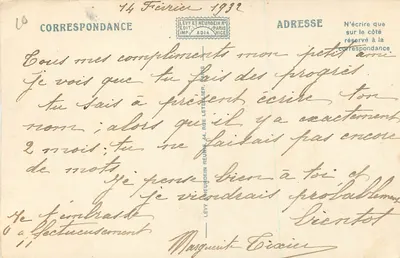 20
14 Février 1932
CORRESPONDANCE
LEVY ET NEURDEIN RIS
PARIS
IMP.
ADRESSE
N'écrire que
sur le côté
réservé à la
correspondance
Tous mes compliments mon petit ami
je vois que tu fais des progrès
tu sais à présent écrire ton
nom ; alors qu'il y a exactement
2 mois : tu ne faisais pas encore
de mots.
Je pense bien à toi et
je viendrais probablement
bientot
Je t'embrasse
affectueusement
Marguerit Tixier
LEVY ET NEURDEIN REUNIS, 44, RUE LETELLIER, PARIS